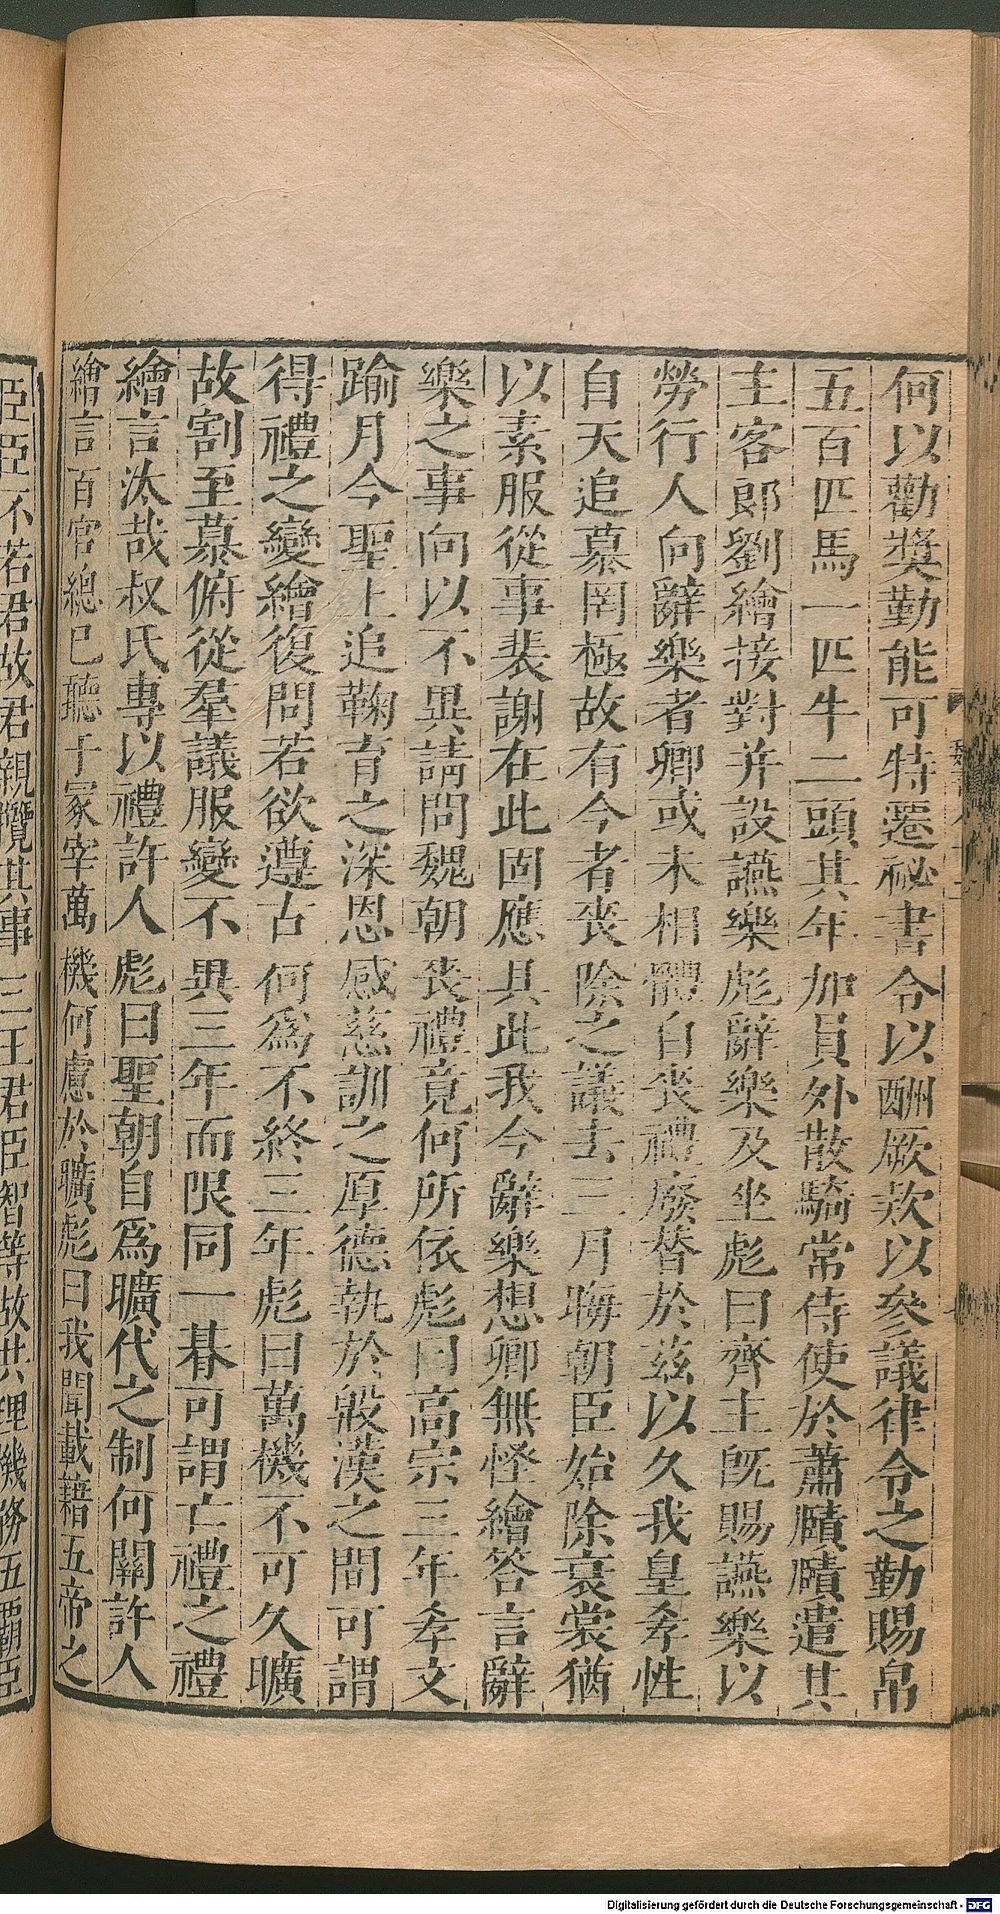 何以勸獎勤能可特遷祕書令以酬厥欵以參議律令之勤賜帛
五百匹馬一匹牛二頭其年加員外散騎常侍使於蕭賾賾遣其
主客郎劉繪接對并設讌樂彪辭樂及坐彪曰齊主既賜讌樂以
勞行人向辭樂者卿或未相體自喪禮廢替於茲以久我皇孝性
自天追慕罔極故有今者喪除之議去三月晦朝臣始除衰裳猶
以素服從事裴謝在此固應具此我今辭樂想卿無怪繪答言辭
樂之事向以不異請問魏朝喪禮竟何所依彪曰高宗三年孝文
踰月今聖上追鞠育之深恩感慈訓之厚德執於殷漢之間可謂
得禮之變繪復問若欲遵古何為不終三年彪曰萬機不可久曠
故割至慕俯從羣議服變不異三年而限同一朞可謂亡禮之禮
繪言汰哉叔氏專以禮許人彪曰聖朝自為曠代之制何關許人
繪言百官總己聽于冢宰萬機何慮於曠彪曰我聞載籍五帝之
臣臣不若君故君親攬其事三王君臣智等故共理機務五霸臣
Digitalisierung gefördert durch die Deutsche Forschungsgemeinschaft - DFG